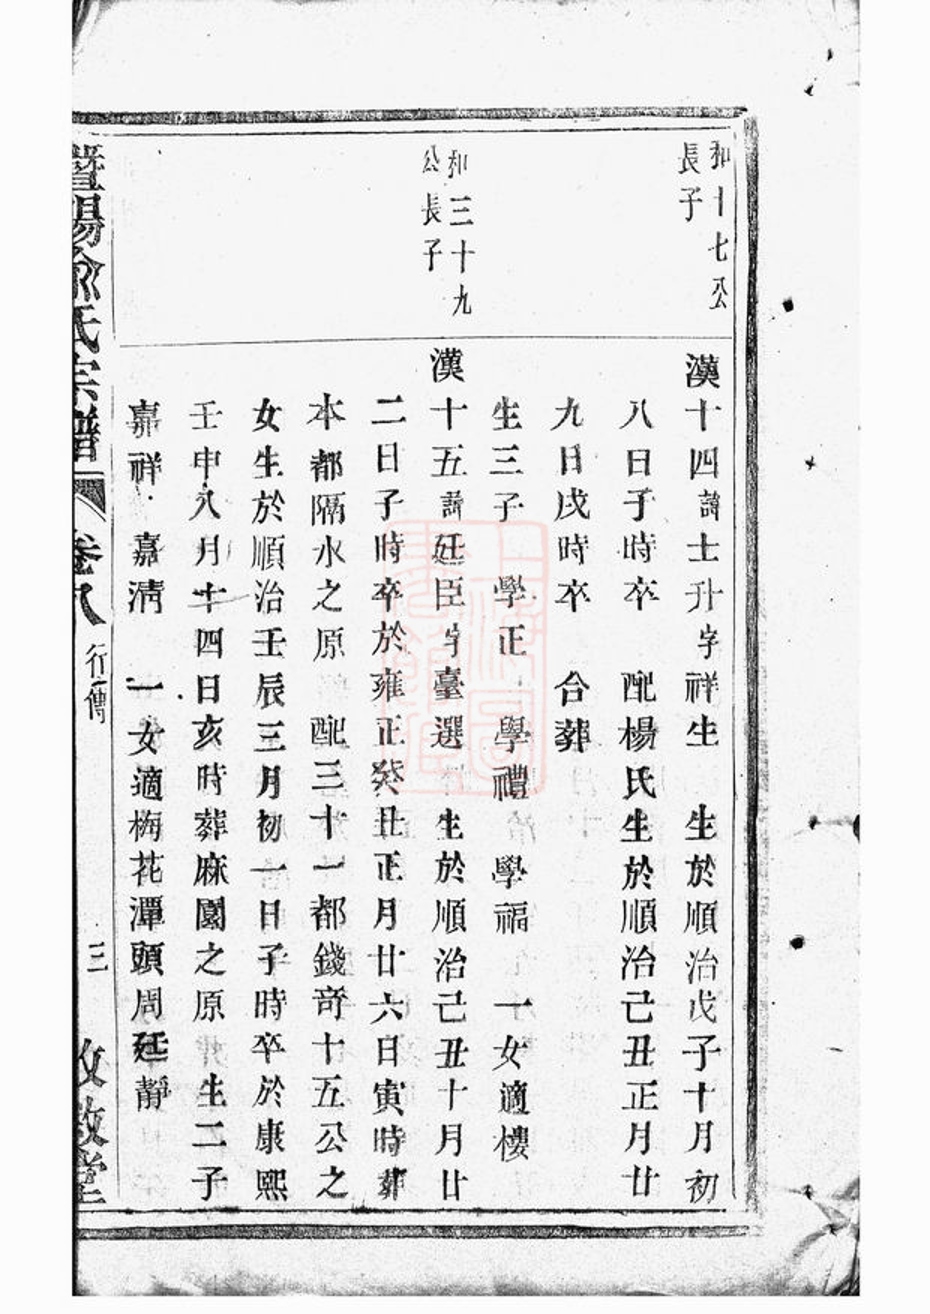 和十七公
長子
漢十四諱士升字祥生 生於順治戊子十月初
八日子時卒 配楊氏生於順治己丑正月廿
九日戌時卒 合葬
生三子 學正 學禮 學福 一女適樓
和三十九
公長子
漢十五諱廷臣字臺選 生於順治己丑十月廿
二日子時卒於雍正癸丑正月廿六日寅時葬
本都隔水之原 配三十一都錢奇十五公之
女生於順治壬辰三月初一日子時卒於康熙
壬申八月十四日亥時葬麻園之原 生二子
嘉祥 嘉淸 一女適梅花潭頭周廷靜
暨陽俞氏宗譜 卷八 行傳 三 敦堂